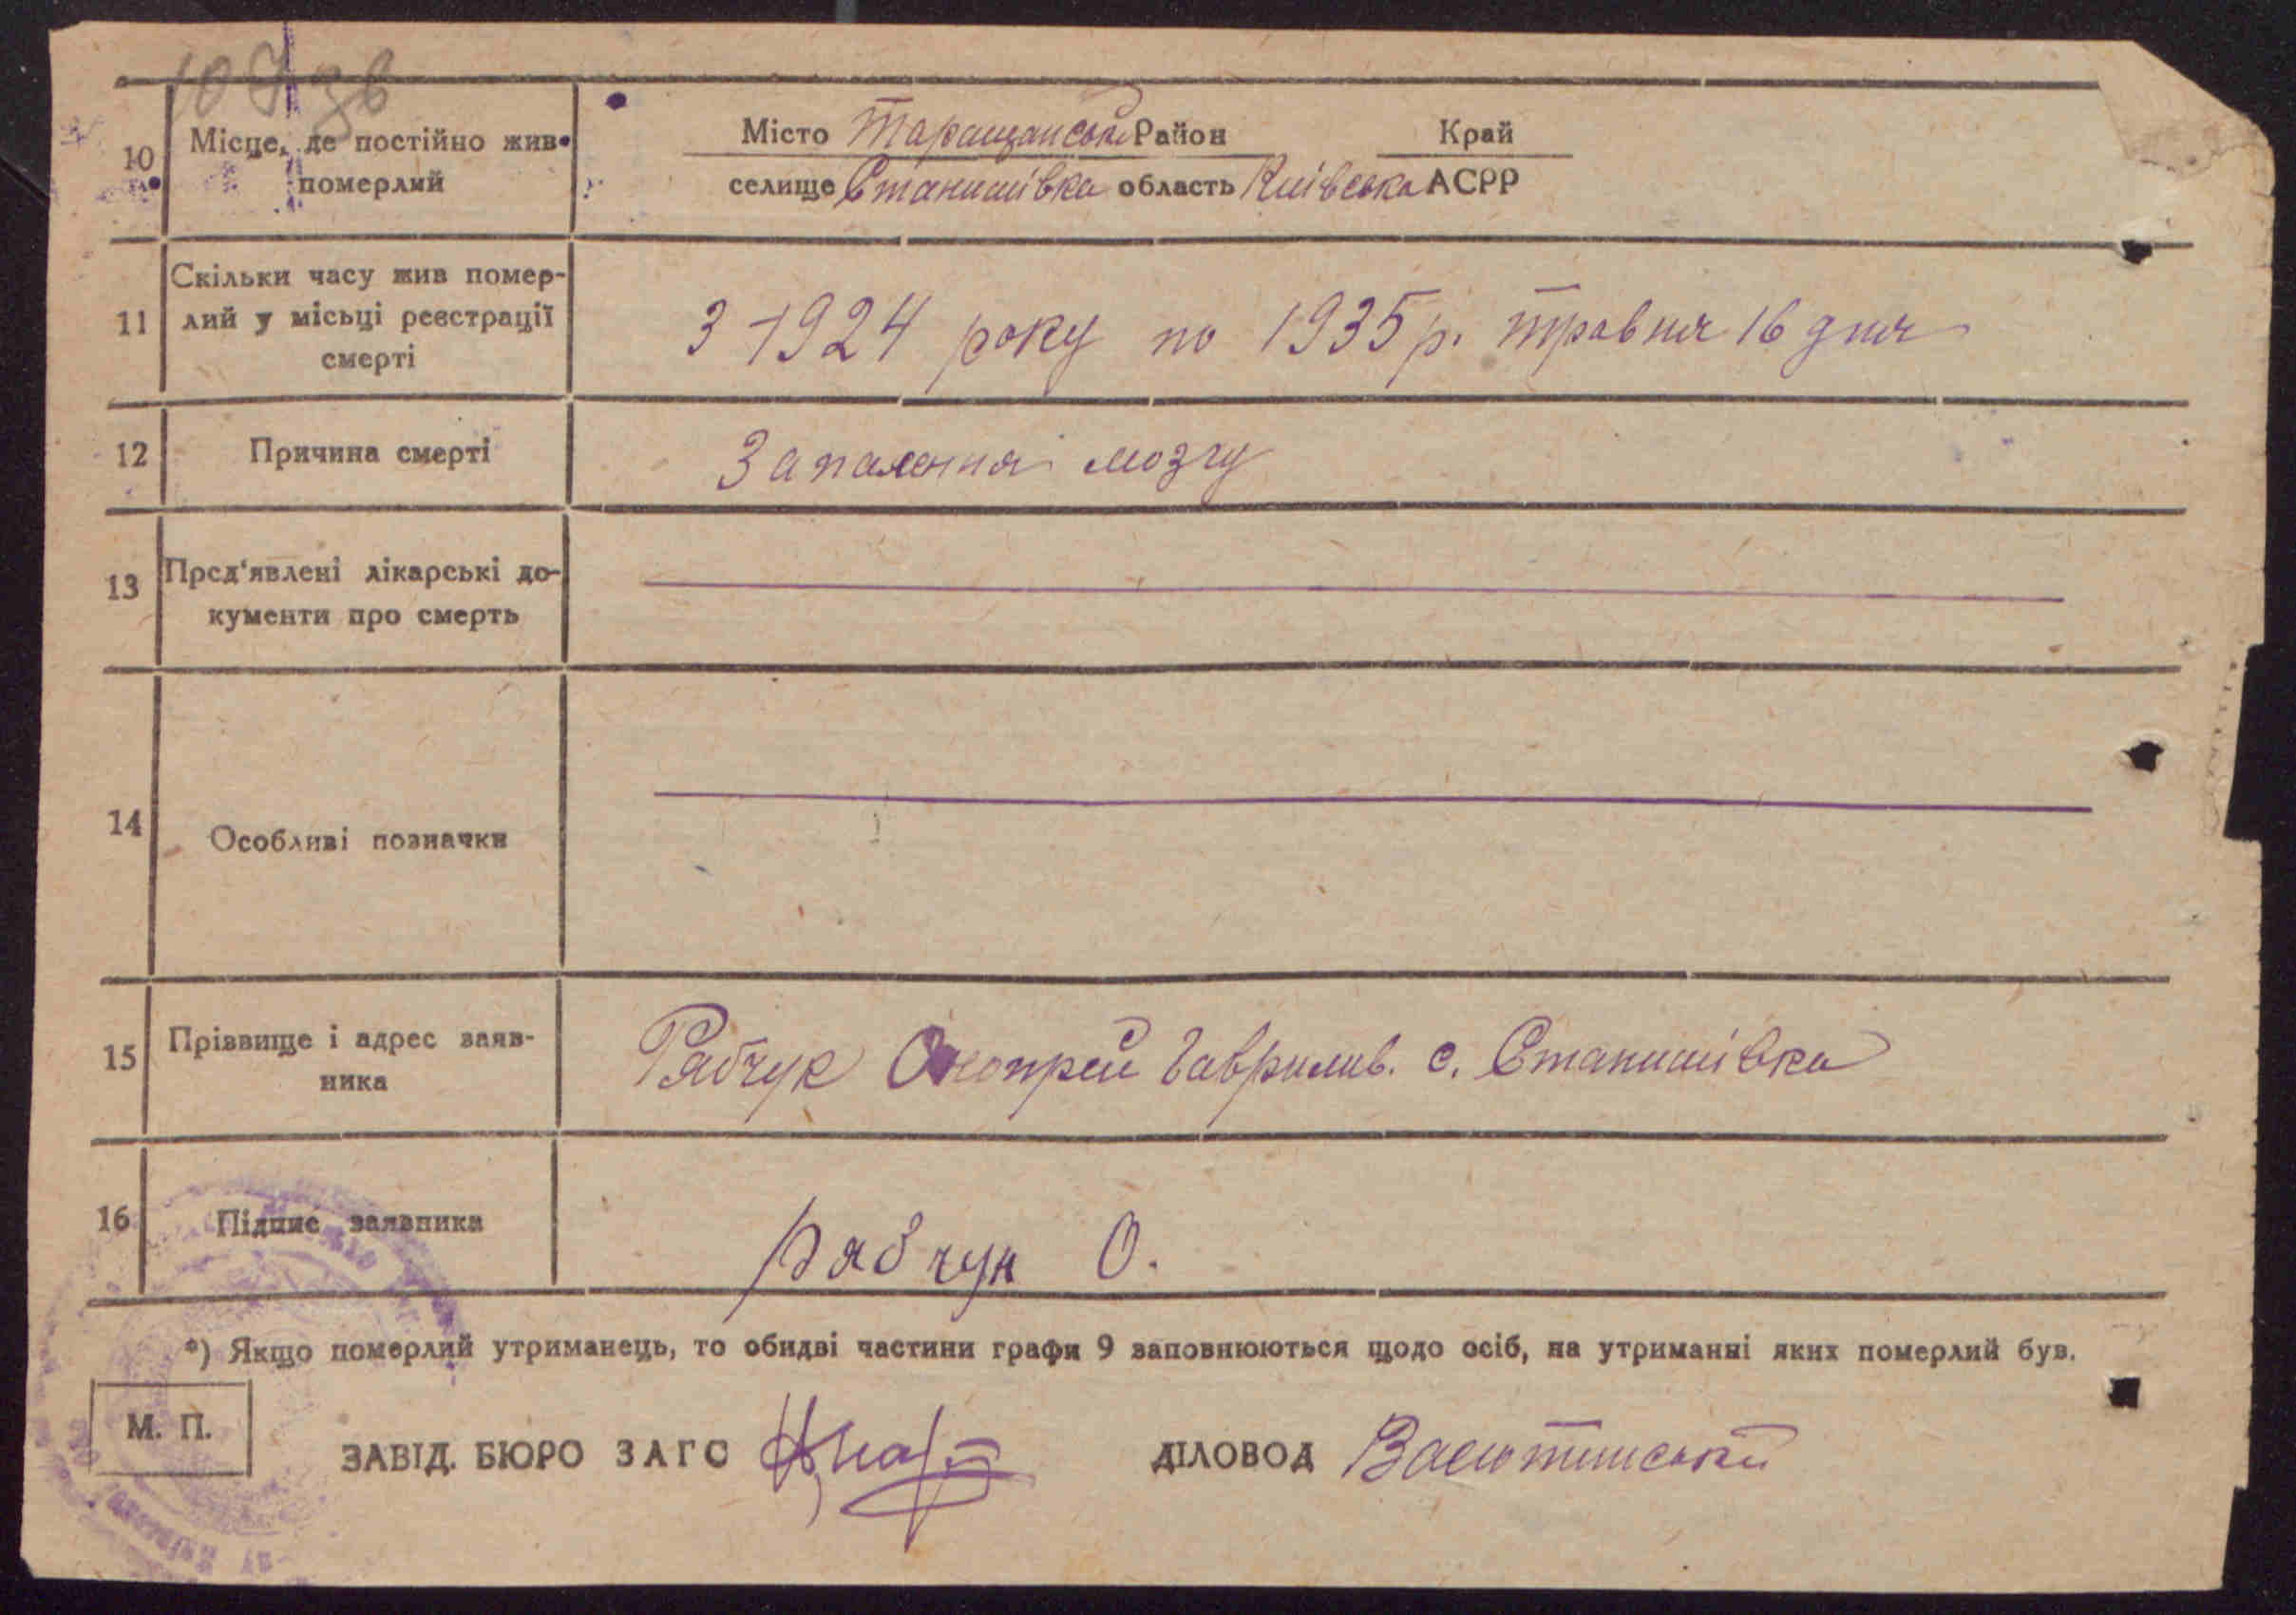 107 зв
10 Місце, де постійно жив померлий
Місто Таращанськ Район Край
селище Станишівка область Київська АСРР
11 Скільки часу жив помер-
лий у місьці реєстрації
смерті
З 1924 року по 1935 р. травня 16 дня
12 Причина смерті Запалення мозгу
13 Пред'явлені лікарські до-
кументи про смерть
14 Особливі позначки
15 Прізвище і адрес заяв-
ника
Рябчук Онопрей Гаврилив. с. Станишівка
16 Підпис заявника Рябчук О.
*) Якщо померлий утриманець, то обидві частини графи 9 заповнюються щодо осіб, на утриманні яких померлий був.
М. П.
ЗАВІД. БЮРО ЗАГС ДІЛОВОД Васютинський